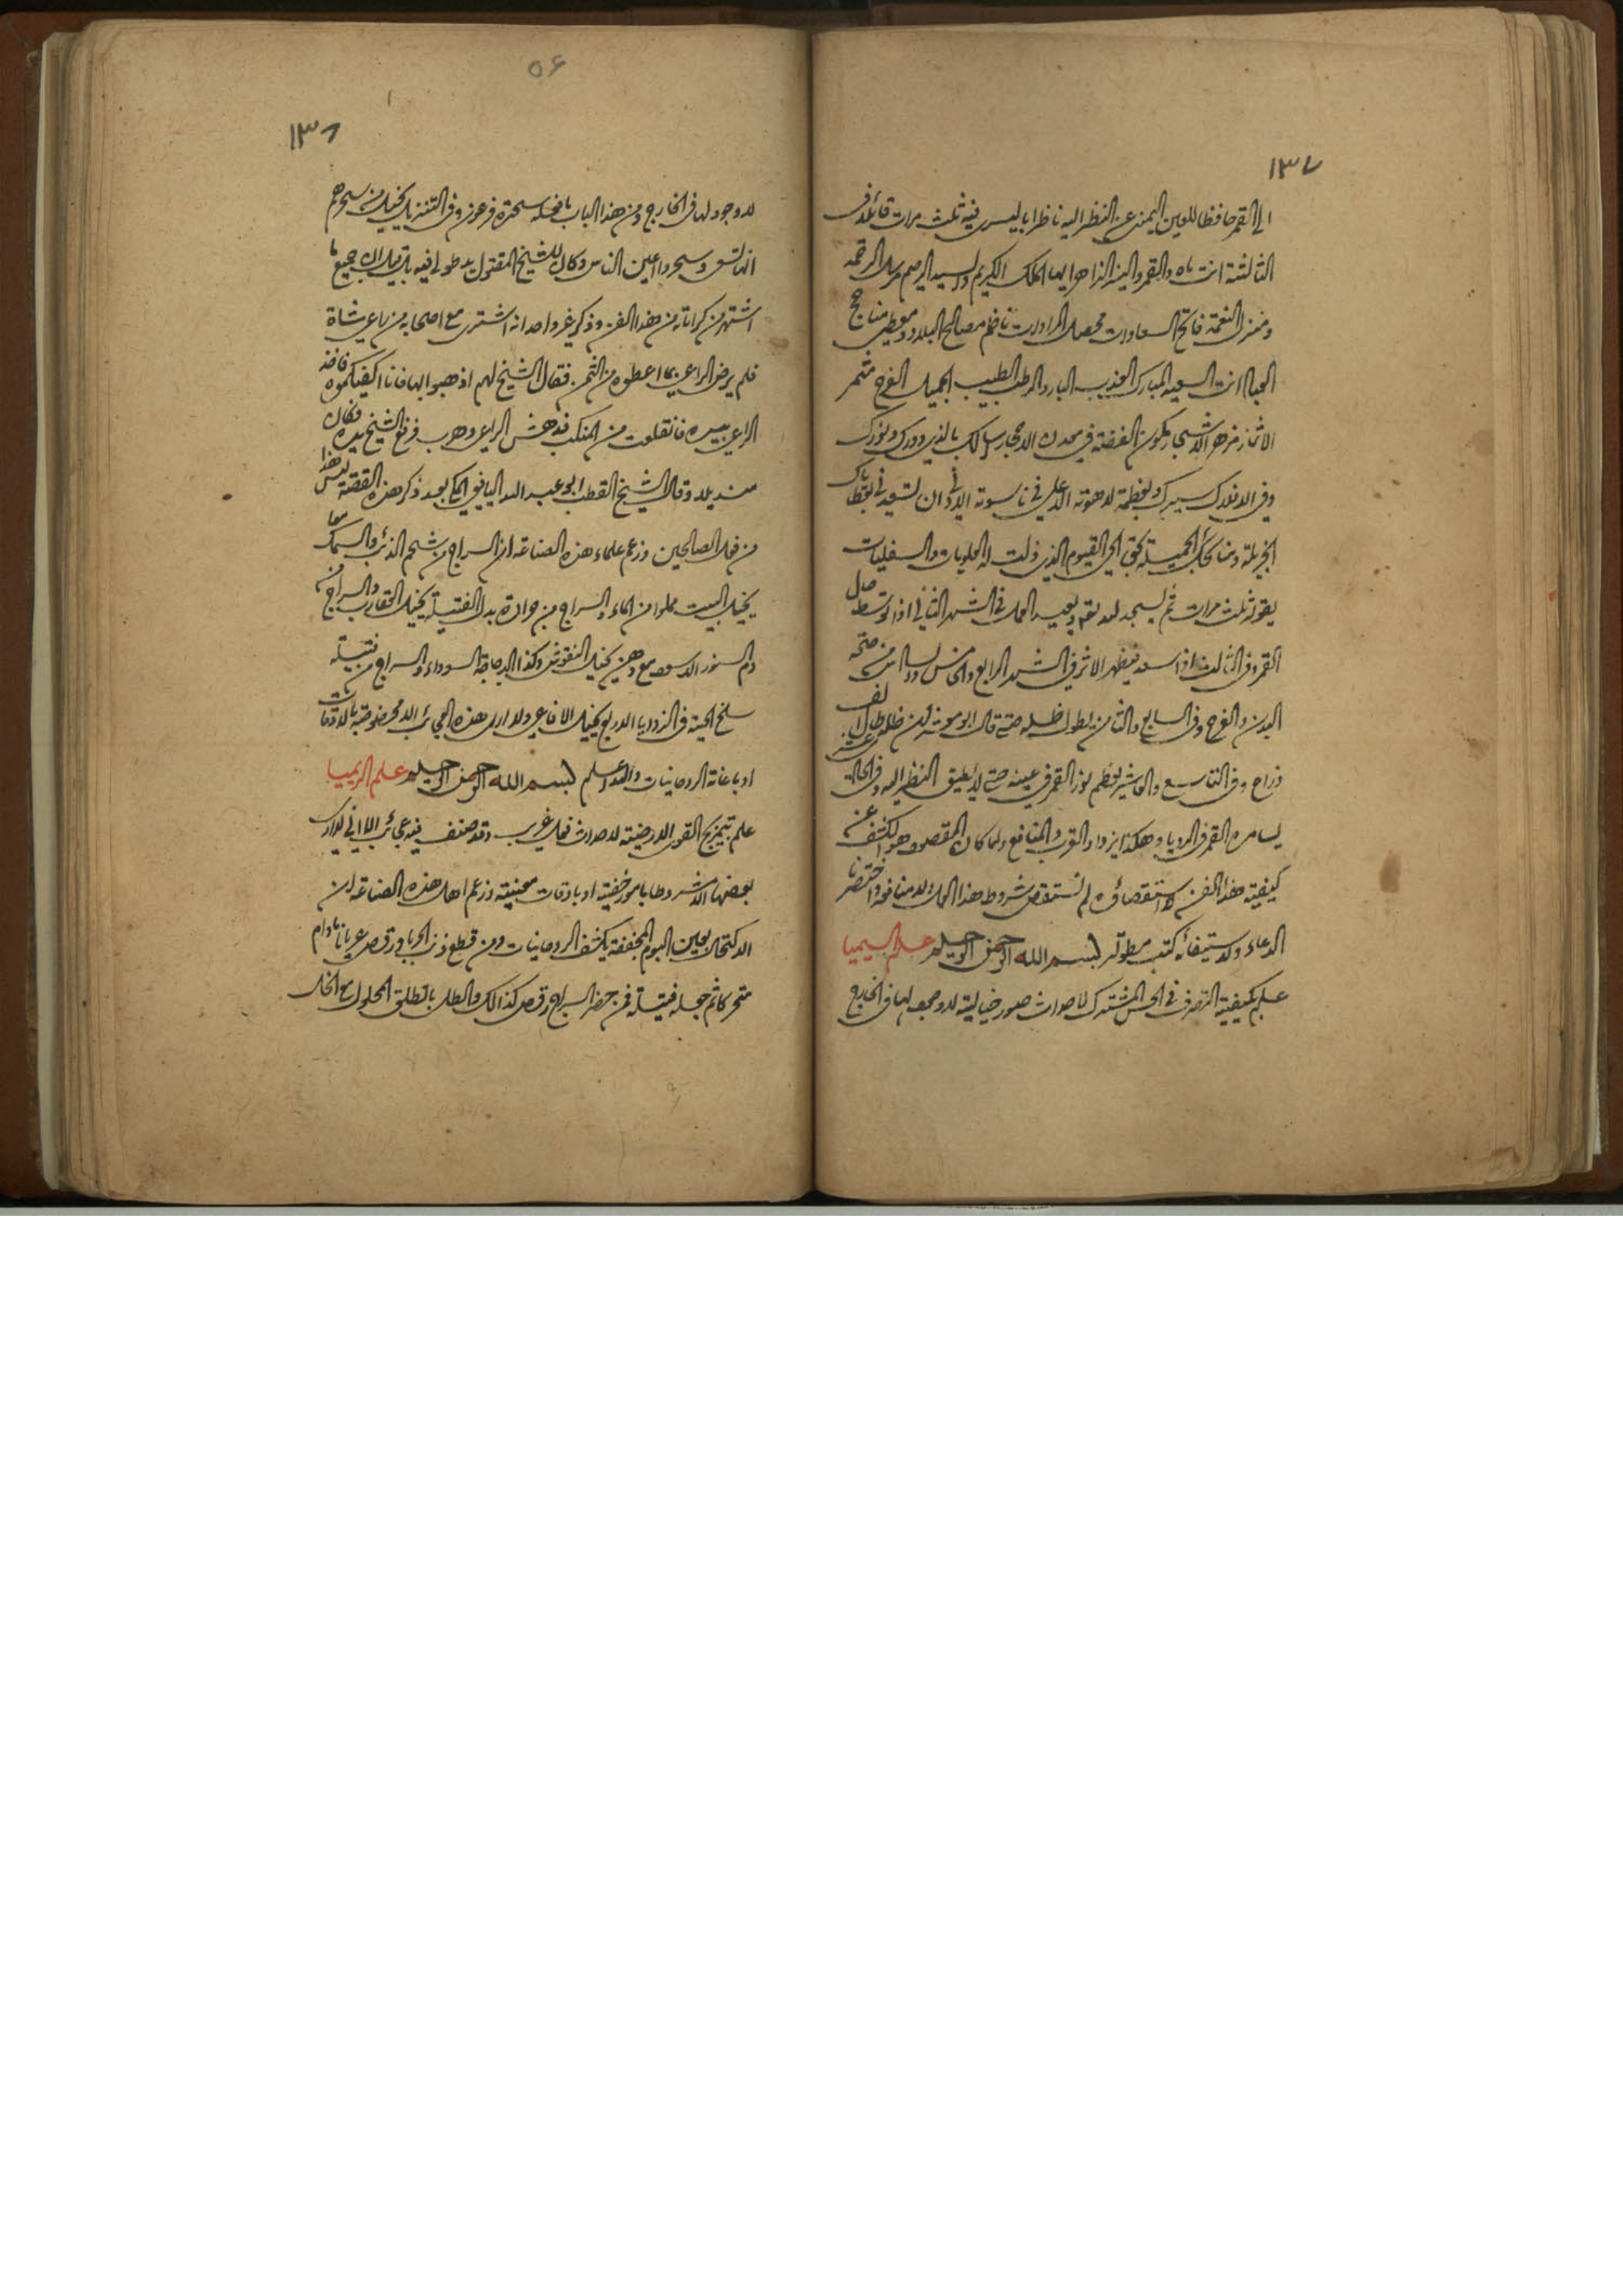 ١٣٧
الى القمر حافظا للعين اليمنى عن النظر اليه ناظرا باليسرى فيه ثلث مرات قائلا فى
الثالثة انت ماه والقمر والنير الزاهر ايها الملك الكريم والسيد الرحيم مرسل الرحمة
ومنزل النعمة فاتح السعادات محصل المرادات ناظم مصالح البلاد ومعطى مناجح
العباد انت السعيد المبارك العذب البارد الرطب الطيب الجميل الفرح مثمر
الاثمار مزهر الاشجار مكون الفضة فى معدن الاحجار سالك بالذى دورك ونورك
وفى الافلاك سيرك وبعظمة لاهوته الاعلى فى ناسوته الادنى ان تسعدنى بعطاياك
الجزيلة ومنائحك الجميلة بحق الحى القيوم الذى ذلت له العلويات والسفليات
يقوله ثلث مرات ثم يسجد لله تعالى ويعيد العمل فى الشهر الثانى اذا توسط حال
القمر وفى الثالث اذا سعد فيظهر الاثر فى الشهر الرابع والخامس والسادس من صحة
البدن والفرح وفى السابع والثامن يطول ظله حتى قال ابو معشر ان ظله طال الف
ذراع وفى التاسع والعاشر يعظم نور القمر فى عينه حتى لا يطيق النظر اليه وفى الحادى عشر
يسامره القمر فى الرويا وهكذا يزداد القرب والمنافع ولما كان المقصود هو الكشف عن
كيفية هذا الفن لا استقصاؤه لم نستقص شروط هذا العمل ولا منافعه واختصرنا
الدعاء ولاستيفائه كتب مطولة بسم الله الرحمن الرحيم علم السيميا
علم بكيفية التصرف فى الحس المشترك لاحداث صور خيالية لا وجود لها فى الخارج
٥٦
١٣٨
لا وجود لها فى الخارج ومن هذا الباب ما فعله سحرة فرعون وفى التنزيل يخيل من سحرهم
انها تسعى وسحروا اعين الناس وكان للشيخ المقتول يد طولى فيه بل قيل ان جميع ما
اشتهر من كراماته من هذا الفن وذكر غير واحد انه اشترى مع اصحابه من راعى شاة
فلم يرض الراعى بما اعطوه من الثمن فقال الشيخ لهم اذهبوا بها فانا اكفيكموه فاخذ
الراعى بيده فانقلعت من المنكب فدهش الراعى وهرب فرفع الشيخ يده فكان
منديلا وقال الشيخ القطب ابو عبد الله اليافعى المكى بعد ذكر هذه القصة ليس هذا
من فعل الصالحين وزعم علماء هذه الصناعة ان السراج من شحم الذئب والسمك معا
يخيل البيت مملوا من الماء والسراج من جرادة بدل الفتيلة يخيل العقارب والسراج من
دم السنور الاسود مع دهن يخيل النقوش وكذا الدجاجة السوداء والسراج من فتيلة
سلخ الحية فى الزوايا الاربع يخيل الافاعى ولا ارى هذه العجائب الا مخصوصة بالاوقات
او باعانة الروحانيات والله اعلم بسم الله الرحمن الرحيم علم الريميا
علم بتمزيج القوى الارضية لاحداث فعل غريب وقد صنف فيه عجائب الا انى لا ارى
بعضها الا مشروطا بامور خفية او باوقات معينة وزعم اهل هذه الصناعة ان
الاكتحال بعين البوم المجففة يكشف الروحانيات ومن قطع ذنب الحرباء ورقص عريانا مادام
متحركا ثم جعله فتيلة فمن حضر السراج رقص كذالك والطلى بالطلق المحلول مع الخل